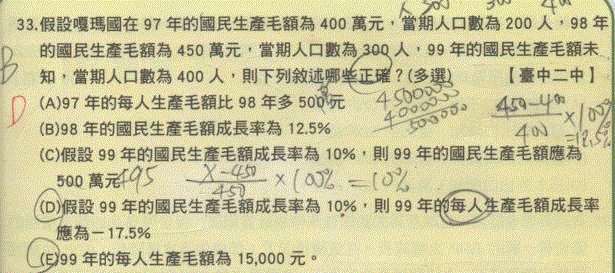 33.假設嘎瑪國在 97 年的國民生產毛額為 400 萬元，當期人口數為 200 人，98 年
的國民生產毛額為 450 萬元，當期人口數為 300 人，99 年的國民生產毛額未
知，當期人口數為 400 人，則下列敘述哪些正確？(多選) 【臺中二中】
B
D
(A)97 年的每人生產毛額比 98 年多 500 元
4500000
4000000
500000
450-400
400
×100%
=12.5%
(B)98 年的國民生產毛額成長率為 12.5%
(C)假設 99 年的國民生產毛額成長率為 10%，則 99 年的國民生產毛額應為
500 萬元
495
X-450
450
×100%=10%
(D)假設 99 年的國民生產毛額成長率為 10%，則 99 年的每人生產毛額成長率
應為－17.5%
(E)99 年的每人生產毛額為 15,000 元。